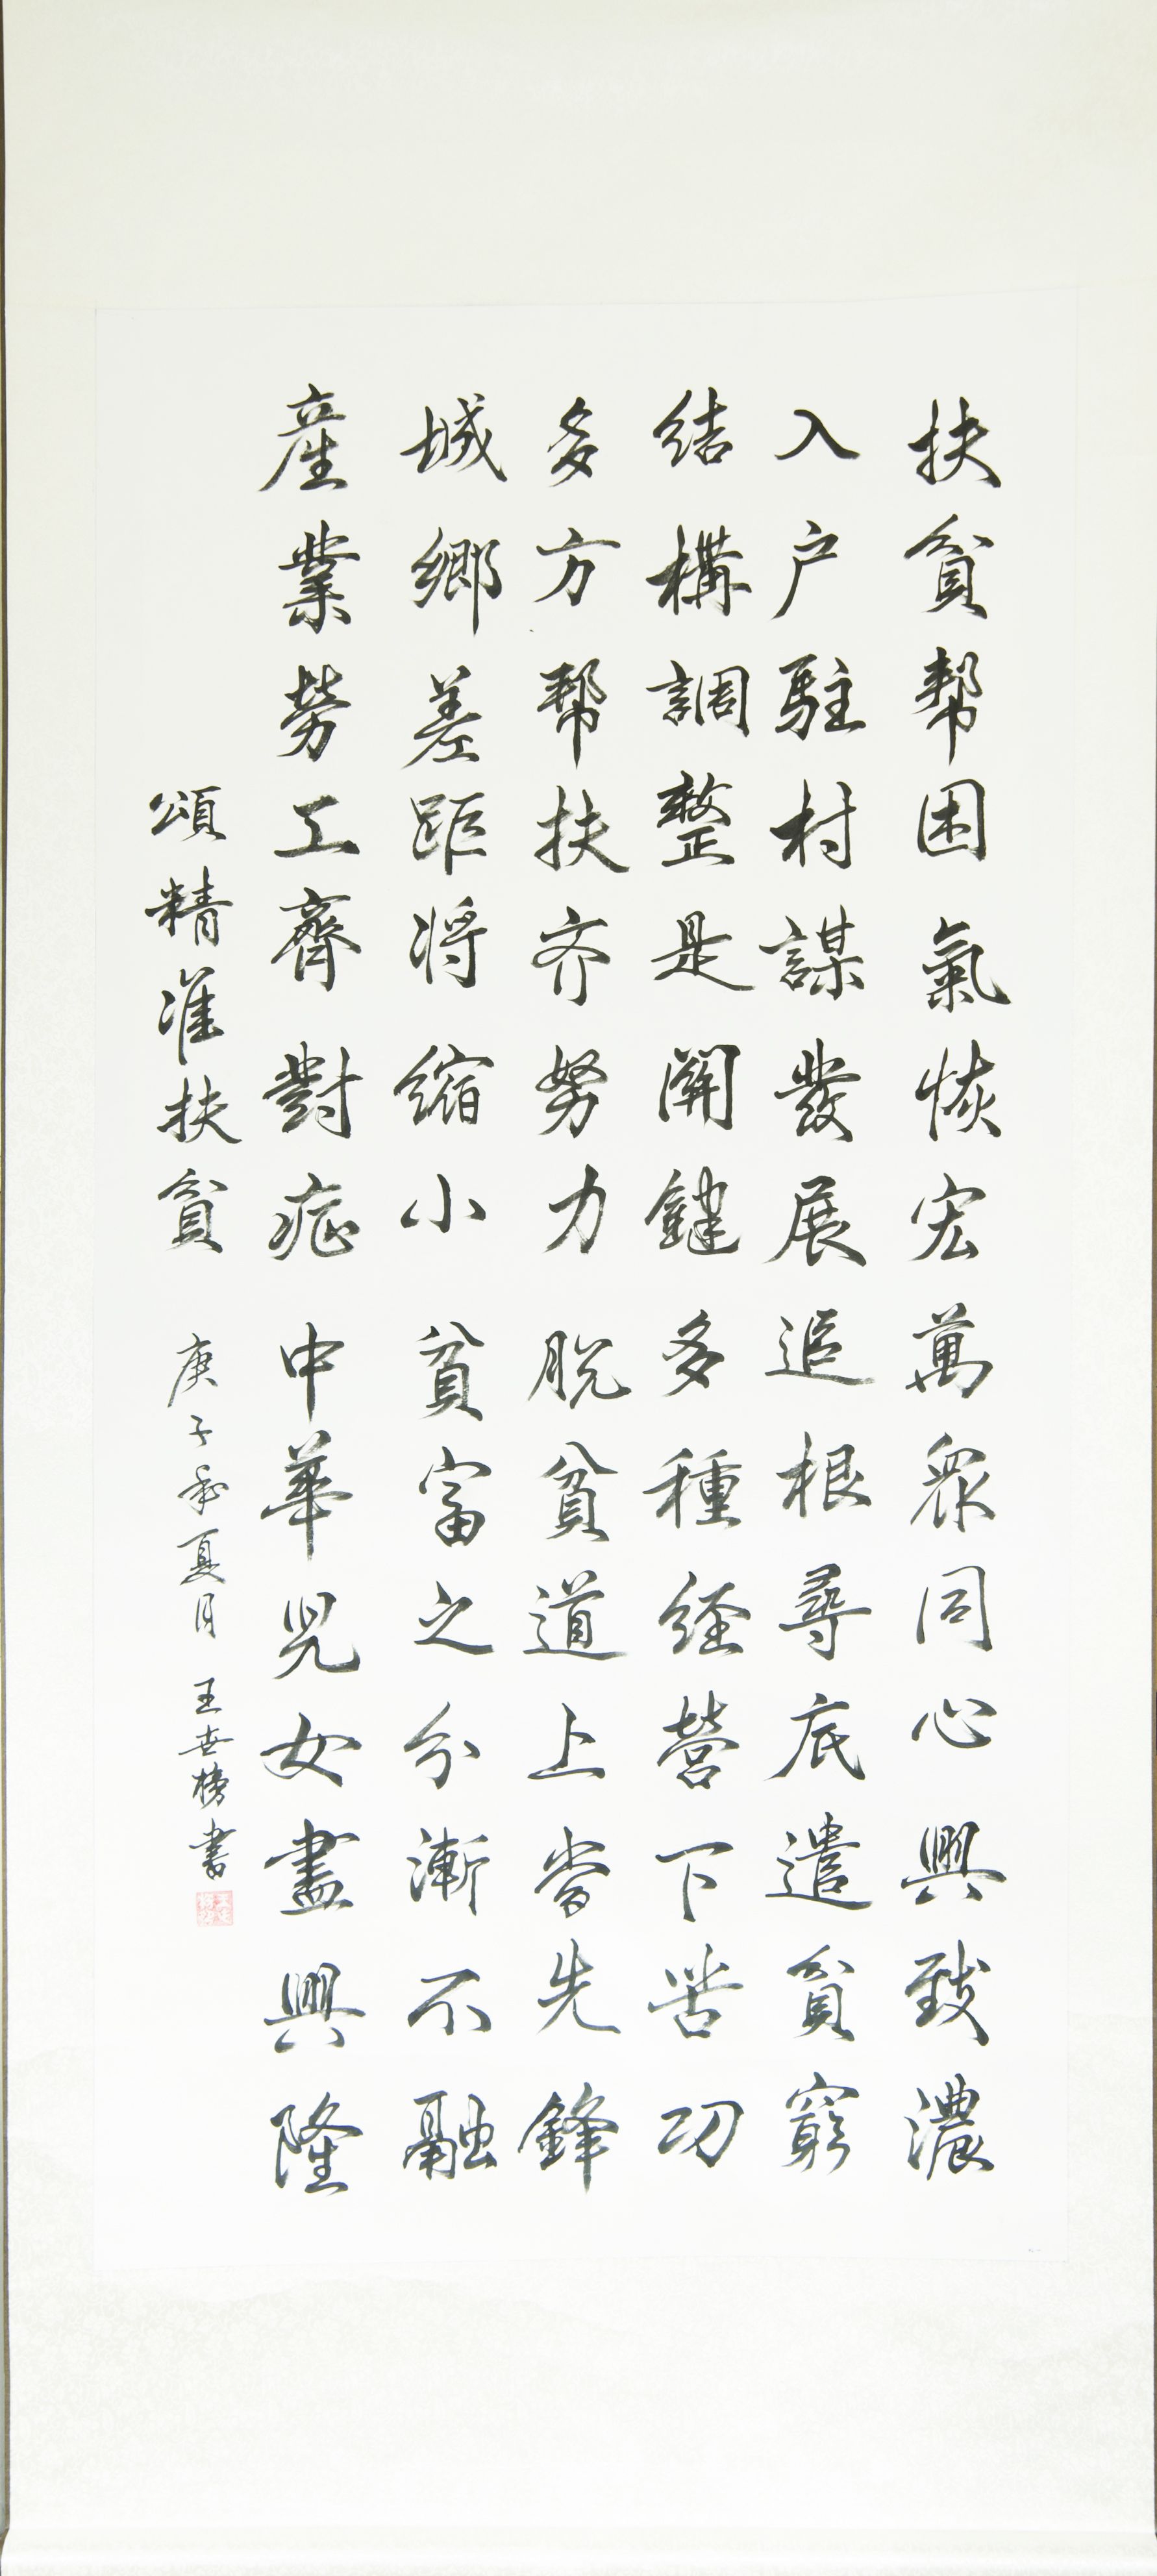 扶貧帮困氣恢宏萬衆同心興致濃
入户駐村謀發展追根尋底遣貧窮
結構調整是関鍵多種經營下苦功
多方帮扶齐努力脱貧道上當先鋒
城鄉差距将縮小貧富之分漸不融
産業勞工齊對症中華兒女盡興隆
頌精准扶貧 庚子年夏月 王世榜書